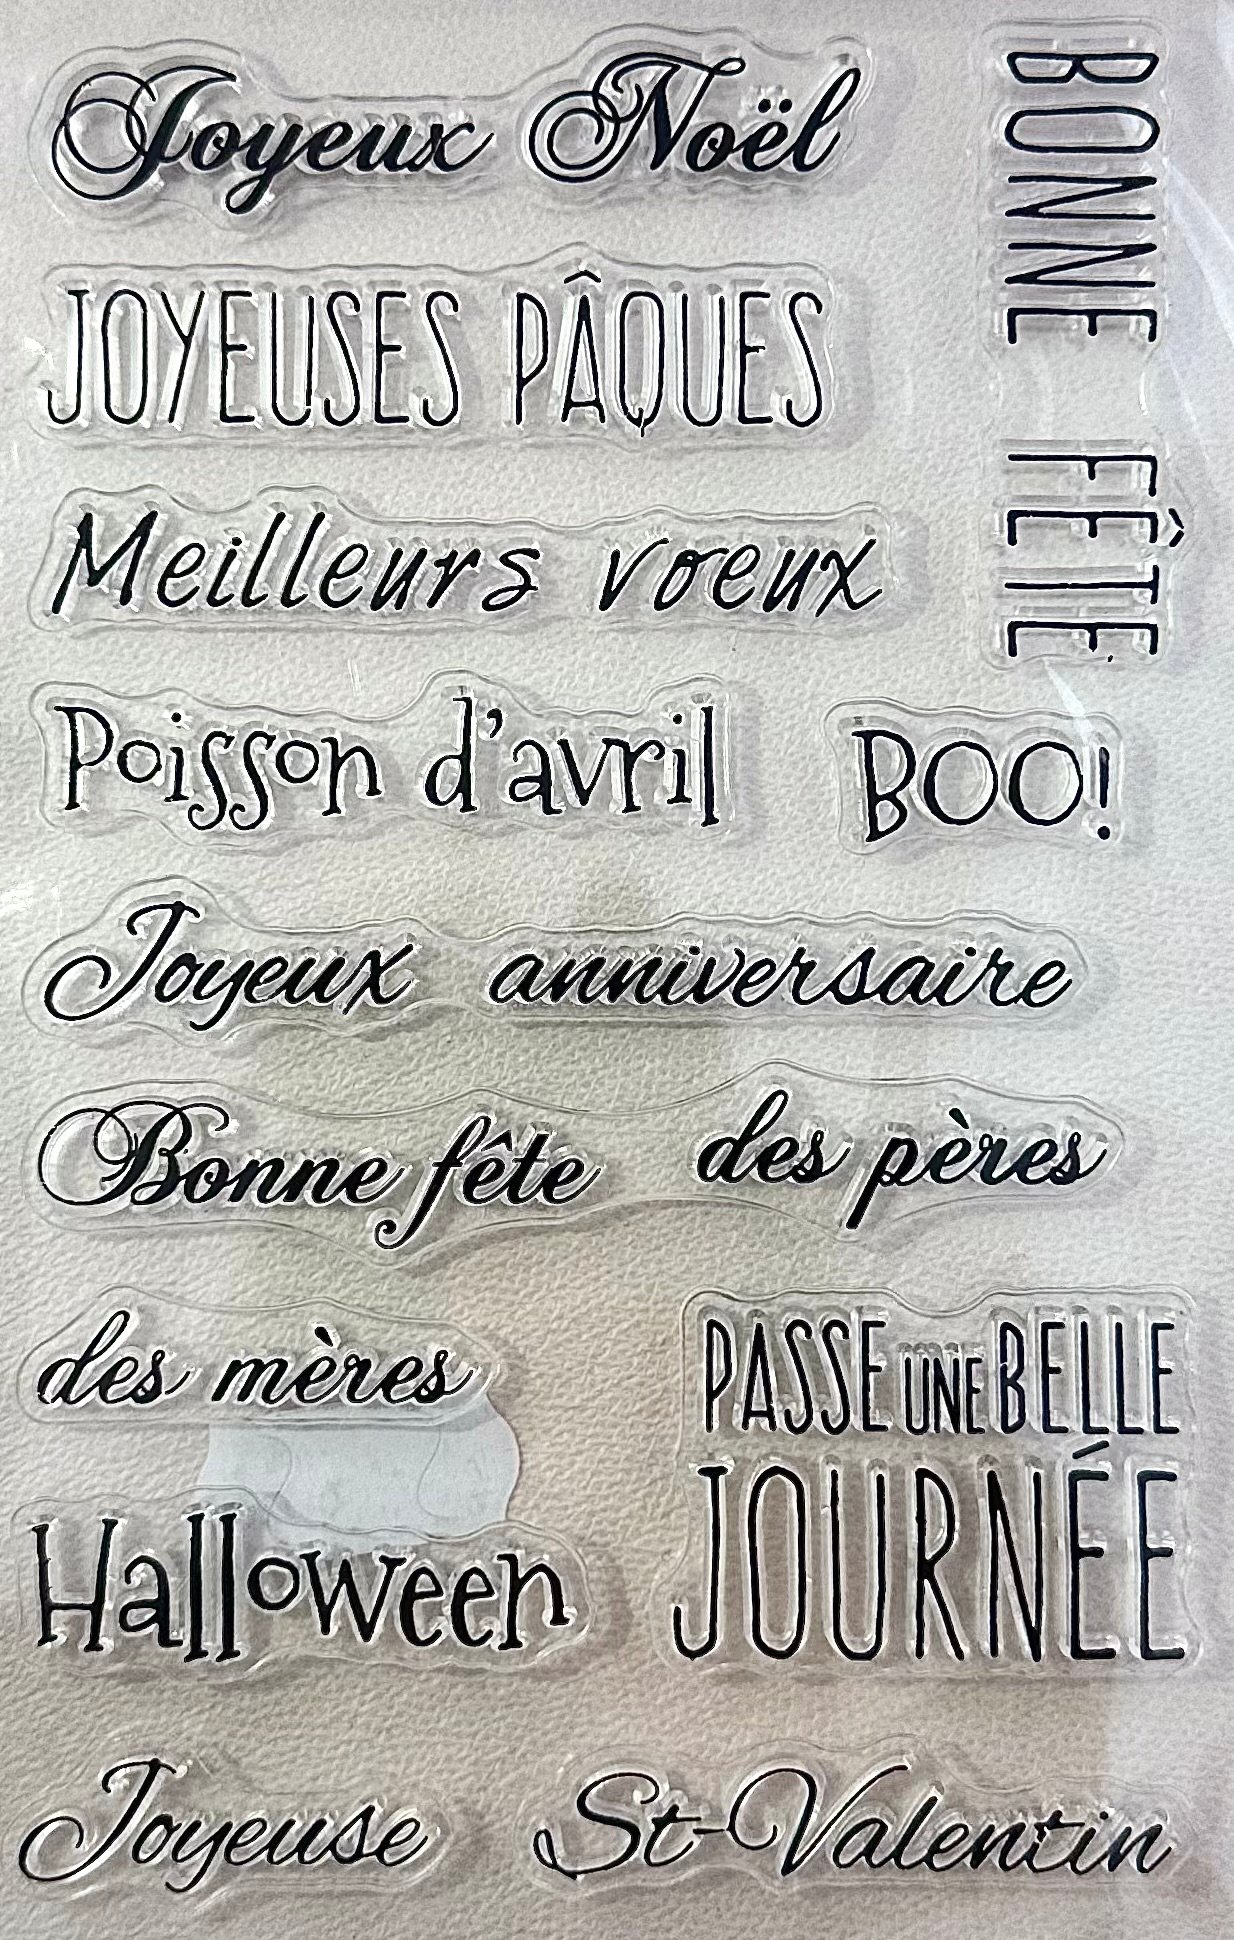 Joyeux Noël
BONNE FÊTE
JOYEUSES PÂQUES
Meilleurs voeux
Poisson d'avril
BOO!
Joyeux anniversaire
Bonne fête des pères
des mères
PASSE UNE BELLE
JOURNÉE
Halloween
Joyeuse St-Valentin